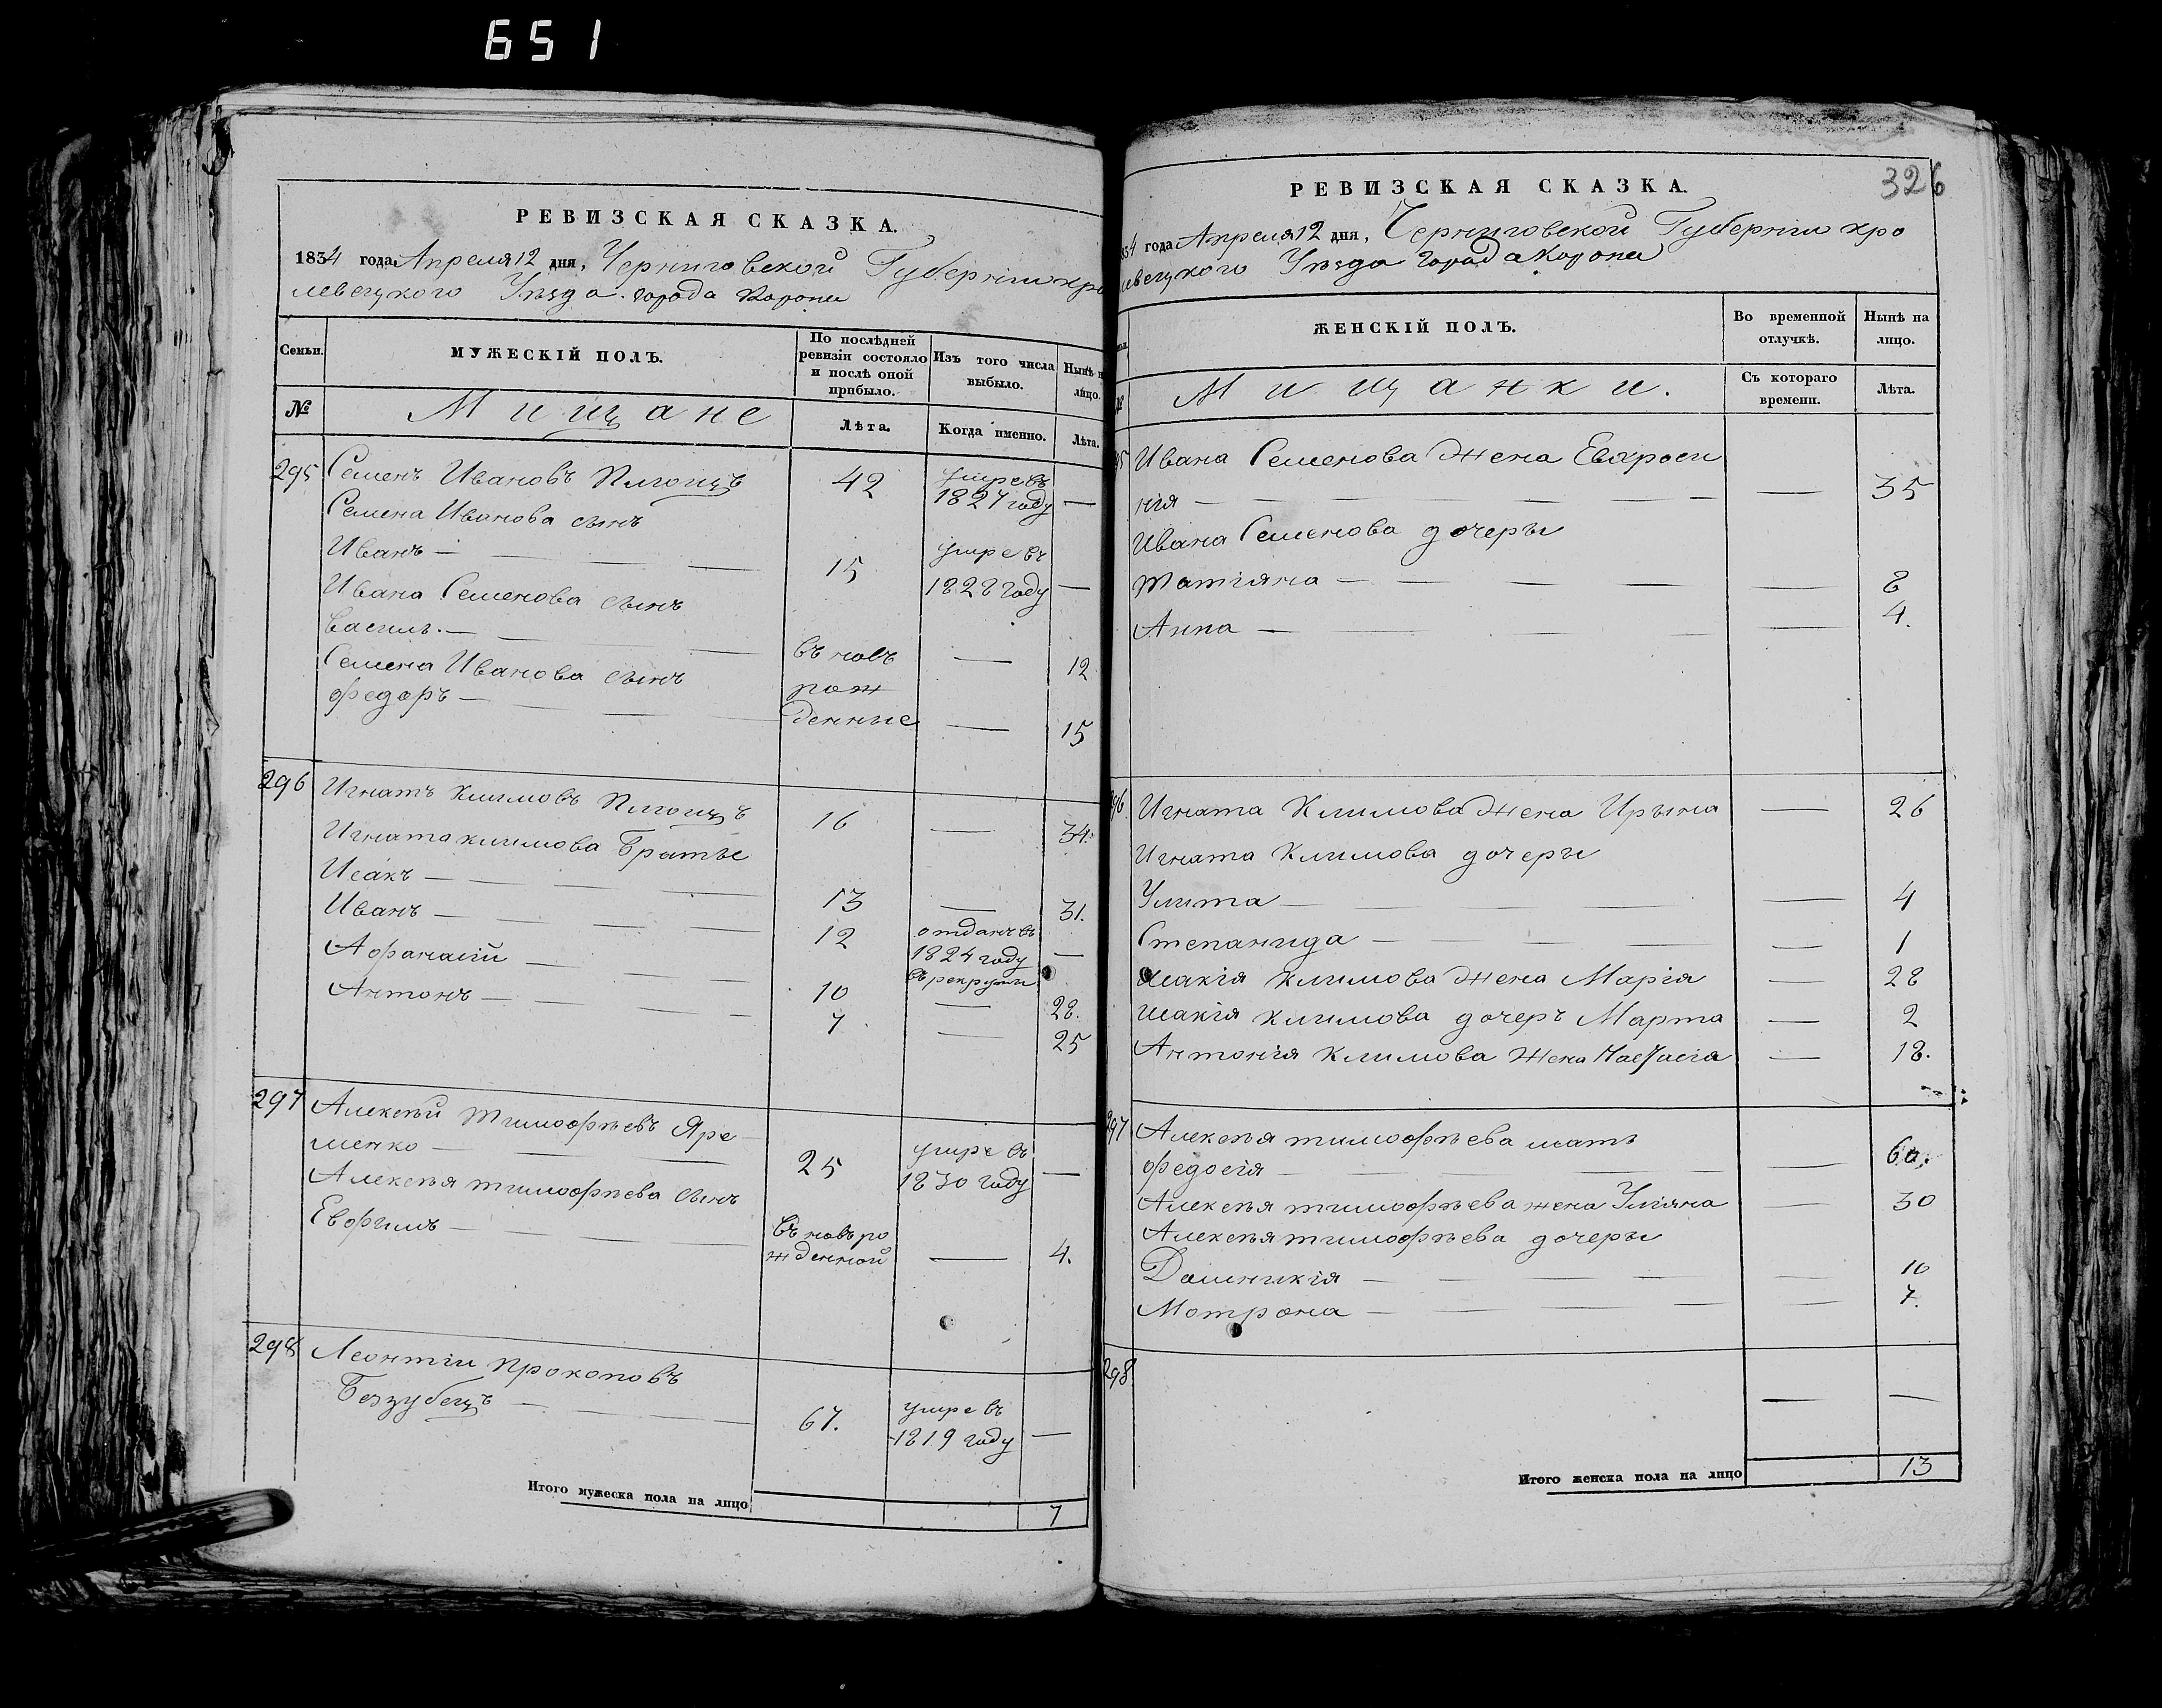 651
РЕВИЗСКАЯ СКАЗКА.
1834 года Апреля 12 дня, Черниговской Губернии кро
левецкого Уѣзда города Коропа
Семьи.
МУЖЕСКІЙ ПОЛЪ.
По послѣдней ревизіи состояло и послѣ оной прибыло.
Изъ того числа выбыло.
Нынѣ на лицо.
№
Мищане
Лѣта.
Когда именно.
Лѣта.
295 Семенъ Ивановъ Пигоицъ 42 умре въ 1827 году —
Семена Иванова сынъ
Иванъ — 15 умре въ 1828 году —
Ивана Семенова сынъ
василь. — въ новь — 12
Семена Иванова сынъ рож
федоръ — денные — 15
296 Игнатъ Климовъ Пигоицъ 16 — 34.
Игната климова Братье
Исакъ — 13 — 31.
Иванъ — 12 отданъ въ 1824 году въ рекруты —
Афанасій — 10 — 28.
Антонъ — 7 — 25
297 Алексѣй тимофѣевъ Яре
менко — 25 умре въ 1830 году —
Алексѣя тимофѣева сынъ
Евфимъ — въ новь ро жденной — 4.
298 Леонтіи Прокоповъ
Беззубецъ — 67. умре въ 1819 году —
Итого мужеска пола на лицо 7
326
РЕВИЗСКАЯ СКАЗКА.
34 года Апреля 12 дня, Черниговской Губернии кро
левецкого Уѣзда города Коропа
ЖЕНСКІЙ ПОЛЪ.
Во временной отлучкѣ.
Нынѣ на лицо.
№
Мищанки.
Съ котораго времени.
Лѣта.
95 Ивана Семенова жена Евфроси
нія — — 35
Ивана Семенова дочеры
татіяна — — 8
Анна — — 4.
96. Игната Климова жена Ирына — 26
Игната Климова дочеры
Улита — — 4
Степанида — — 1
исакія климова жена Марія — 28
исакія климова дочеръ Марта — 2
Антонія климова жена Настасія — 18.
297 Алексѣя тимофѣева мать
федосія — — 60.
Алексѣя тимофѣева жена Уліяна — 30
Алексѣя тимофѣева дочеры
Домникія — — 10
Мотрона — — 7.
298. — —
Итого женска пола на лицо 13